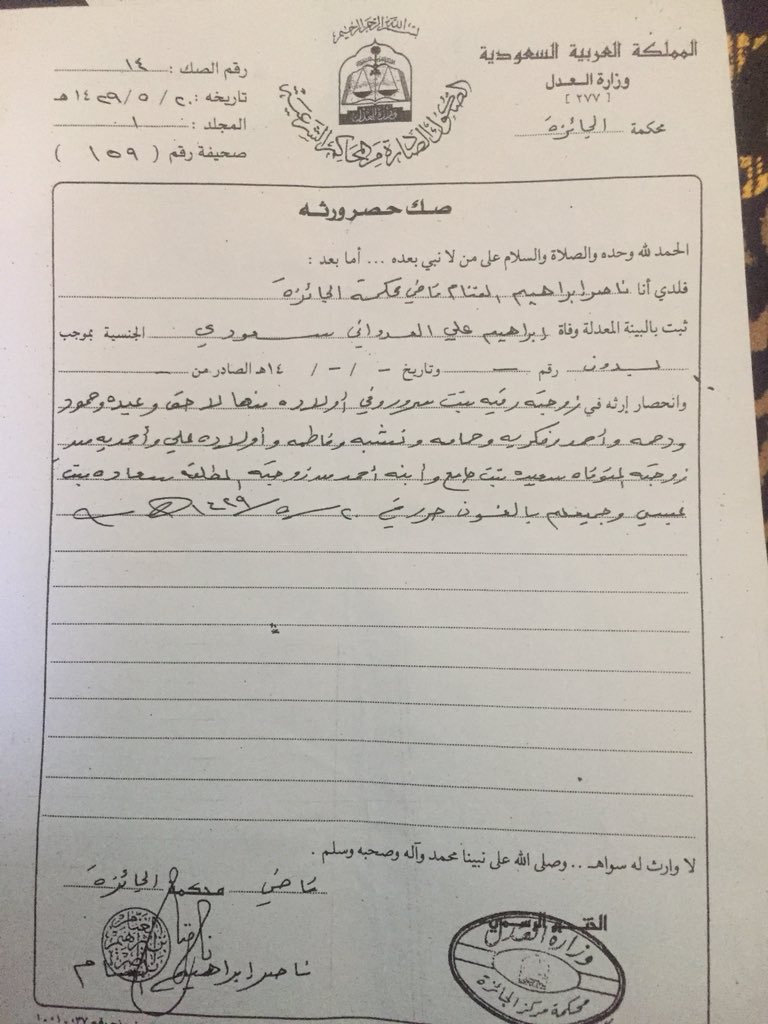 بسم الله الرحمن الرحيم
المملكة العربية السعودية
وزارة العدل
[ ٢٧٧ ]
محكمة الجائزة
وزارة العدل
الصكوك الصادرة من المحاكم الشرعية
رقم الصك : ١٤
تاريخه : ٢٠ / ٥ / ١٤٢٩ هـ
المجلد : ١
صحيفة رقم ( ١٥٩ )
صك حصر ورثه
الحمد لله وحده والصلاة والسلام على من لا نبي بعده ... أما بعد :
فلدي أنا ناصر ابراهيم الغنام قاضي محكمة الجائزة
ثبت بالبينة المعدلة وفاة ابراهيم علي العدواني سعودي الجنسية بموجب
بدون رقم — وتاريخ - / - / ١٤ هـ الصادر من —
وانحصار إرثه في زوجته رقيه بنت سرور وفي أولاده منها لاحق وعيده وحمود
ورحمه وأحمد وفكريه وحمامه و وفاطمه وأولاده علي وأحمديه من
زوجته المتوفاه سعيده بنت جامع وابنه أحمد من زوجته المطلقه سعاده بنت
عيسي وجميعهم بالغون حرر في ٢٠/٥/١٤٢٩
لا وارث له سواهـ .. وصلى الله على نبينا محمد وآله وصحبه وسلم .
قاضي محكمة الجائزة
الختم الرسمي
ناصر ابراهيم الغنام
وزارة العدل
محكمة مركز الجائزة